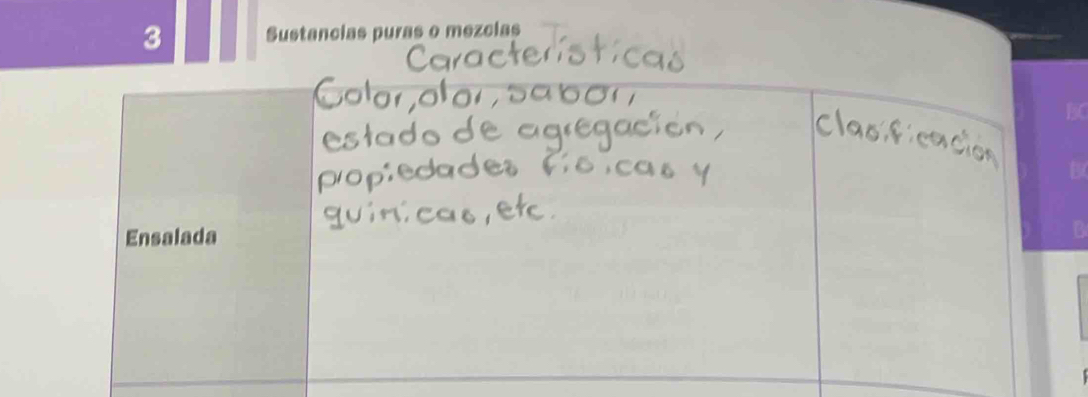 3
Sustancias puras o mezclas
Caracteristicas
Color, olor, sabor,
estado de agregación,
propiedades fisicas y
quimicas, etc.
Clasificación
Ensalada